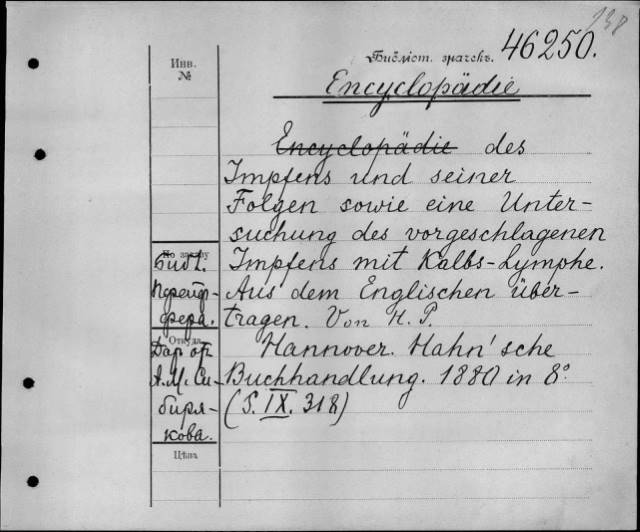 138
Инв.
№
Библіот. значекъ. 46250.
Encyclopädie
Encyclopädie des
Impfens und seiner
Folgen sowie eine Unter-
suchung des vorgeschlagenen
Impfens mit Kalbs-Lymphe.
Aus dem Englischen über-
tragen. Von H. P.
Hannover. Hahn'sche
Buchhandlung. 1880 in 8°
(S. IX. 318)
По заказу
Библ.
Прейф-
фера.
Откуда
Дар от
А. М. Си-
биря-
кова.
Цѣна